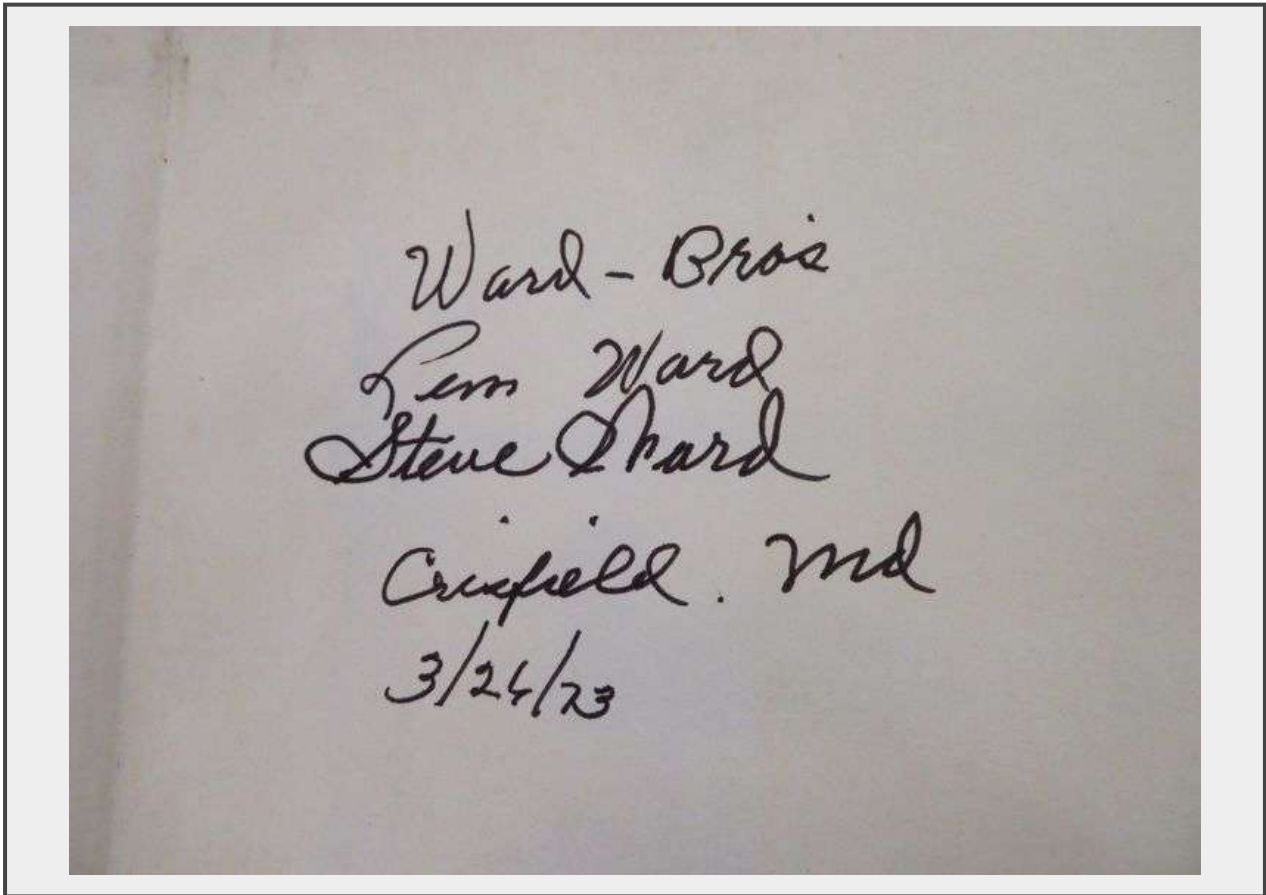 Ward - Bro's
Lem Ward
Steve Ward
Crisfield. Md
3/26/73